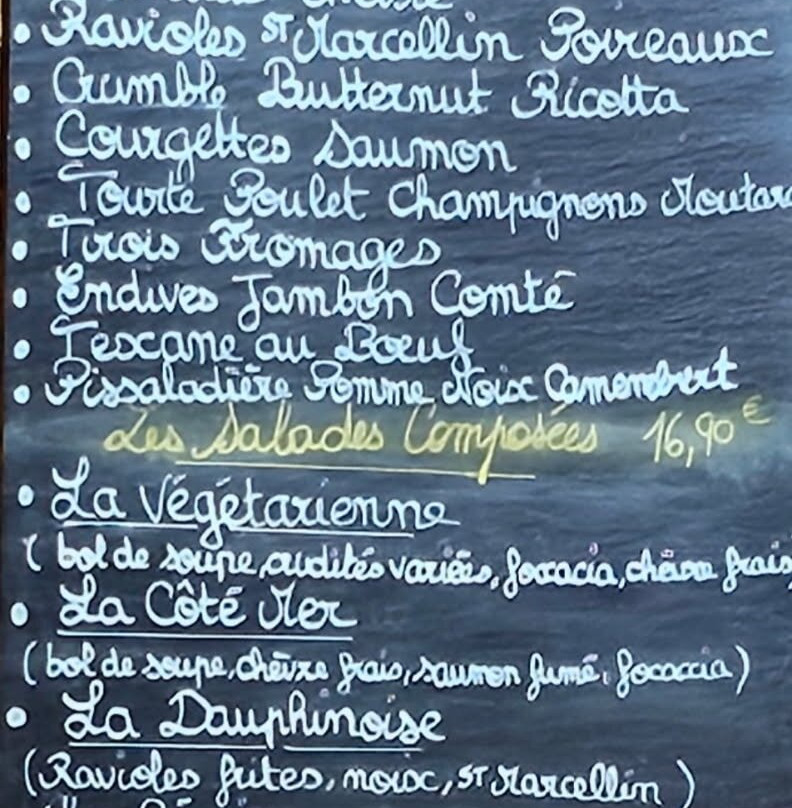 • Ravioles ST Marcellin Poireaux
• Crumble Butternut Ricotta
• Courgettes Saumon
• Tourte Poulet Champignons Moutard
• Trois Fromages
• Endives Jambon Comté
• Toscane au Bœuf
• Pissaladière Pomme Noix Camembert
Les Salades Composées 16,90€
• La Végétarienne
( bol de soupe, crudités variées, focaccia, chèvre frais
• La Côté Mer
(bol de soupe, chèvre frais, saumon fumé, focaccia)
• La Dauphinoise
(Ravioles frites, noix, ST Marcellin )